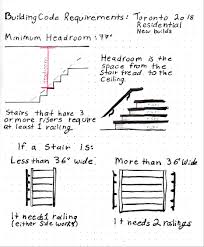 Building Code Requirements: Toronto 2018
Residential
New builds
Minimum Headroom:
Headroom is the
space from the
Stair tread to the
Ceiling.
Stairs that have 3
or more risers require
at least 1 railing.
If a Stair is:
Less than 36" wide
More than 36" wide
It needs 1 railing
(either side works)
It needs 2 railings